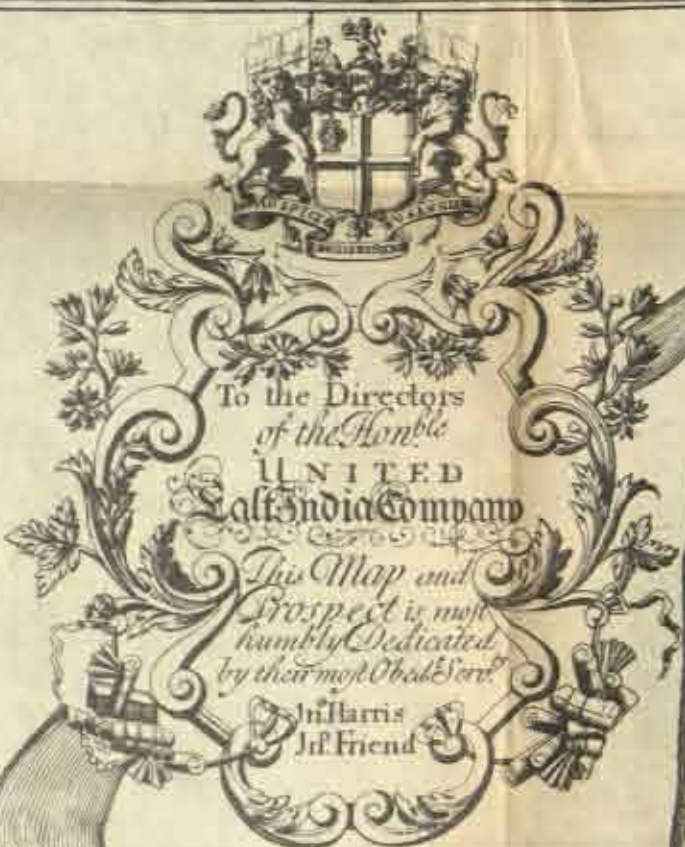 AUSPICIO
To the Directors
of the Hon.ble
UNITED
East India Company
This Map and
Prospect is most
humbly Dedicated
by their most Obed.t Serv.ts
Jn.º Harris
Jos. Friend